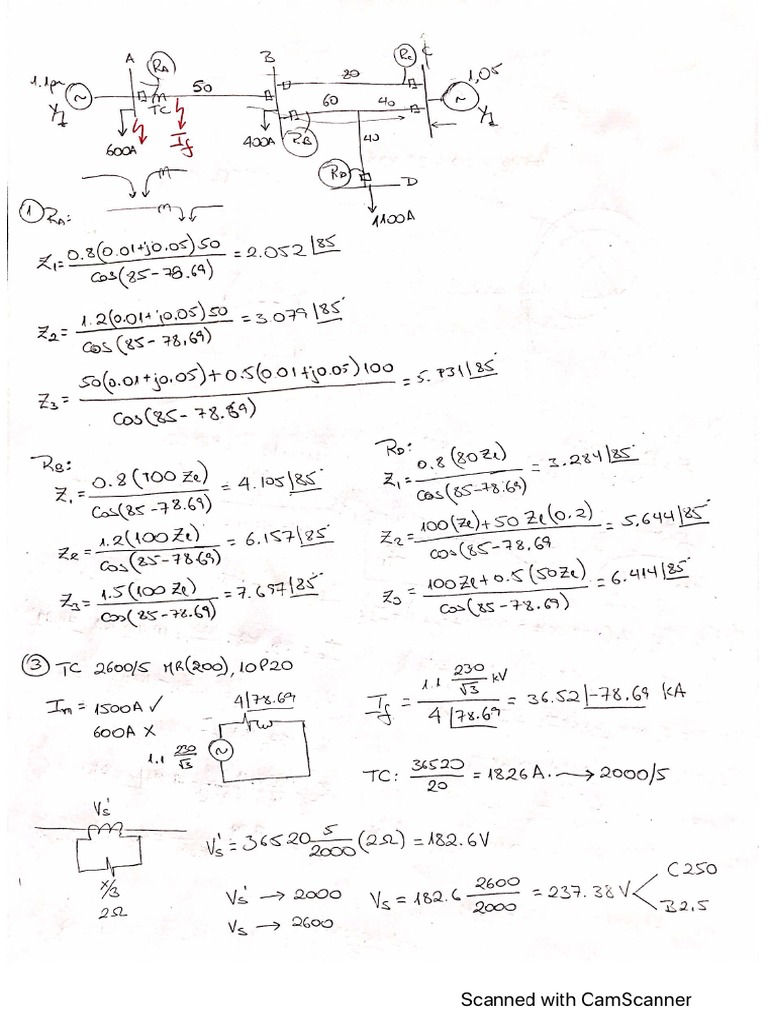 A RA B RC C
1.1pu 50 80 1,05
TC 60 40
Y⏚ 600A If 400A RB 40
RD D
1100A
① RA:
Z1 = 0.8(0.01+j0.05)50 / cos(85-78.69) = 2.052 ∠85°
Z2 = 1.2(0.01+j0.05)50 / cos(85-78,69) = 3.079 ∠85°
Z3 = 50(0.01+j0.05)+0.5(0.01+j0.05)100 / cos(85-78.69) = 5.731 ∠85°
RB:
Z1 = 0.8(100Zl) / cos(85-78.69) = 4.105 ∠85°
Z2 = 1.2(100Zl) / cos(85-78.69) = 6.157 ∠85°
Z3 = 1.5(100Zl) / cos(85-78.69) = 7.697 ∠85°
RD:
Z1 = 0.8(80Zl) / cos(85-78.69) = 3.284 ∠85°
Z2 = 100(Zl)+50Zl(0.2) / cos(85-78.69 = 5,644 ∠85°
Z3 = 100Zl+0.5(50Zl) / cos(85-78.69) = 6.414 ∠85°
③ TC 2600/5 MR(200), 10P20
In = 1500A ✓
600A X
4∠78.69
1.1 230/√3
If = 1.1 230/√3 kV / 4∠78.69 = 36.52 ∠-78.69 kA
TC: 36520/20 = 1826A. → 2000/5
Vs'
x/3
2Ω
Vs' = 36520 5/2000 (2Ω) = 182.6V
Vs' → 2000
Vs → 2600
Vs = 182.6 2600/2000 = 237.38V
C250
B2.5
Scanned with CamScanner